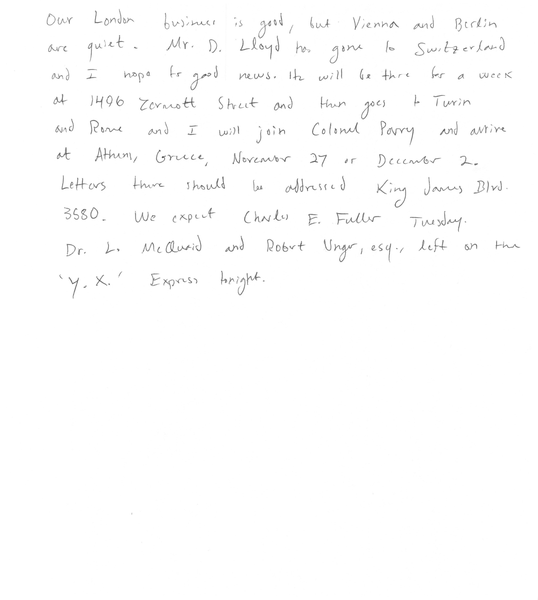 Our London business is good, but Vienna and Berlin
are quiet. Mr. D. Lloyd has gone to Switzerland
and I hope for good news. He will be there for a week
at 1496 Zermott Street and then goes to Turin
and Rome and I will join Colonel Parry and arrive
at Athens, Greece, November 27 or December 2.
Letters there should be addressed King James Blvd.
3580. We expect Charles E. Fuller Tuesday.
Dr. L. McQuaid and Robert Unger, esq., left on the
'Y. X.' Express tonight.